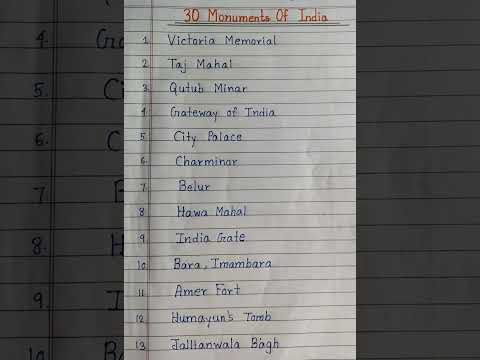 30 Monuments Of India
1 Victoria Memorial
2 Taj Mahal
3. Qutub Minar
4 Gateway of India
5 City Palace
6 Charminar
7 Belur
8 Hawa Mahal
9 India Gate
10 Bara, Imambara
11 Amer Fort
12 Humayun's Tomb
13 Jallianwala Bagh
4.
5.
6.
7.
8.
9.
10